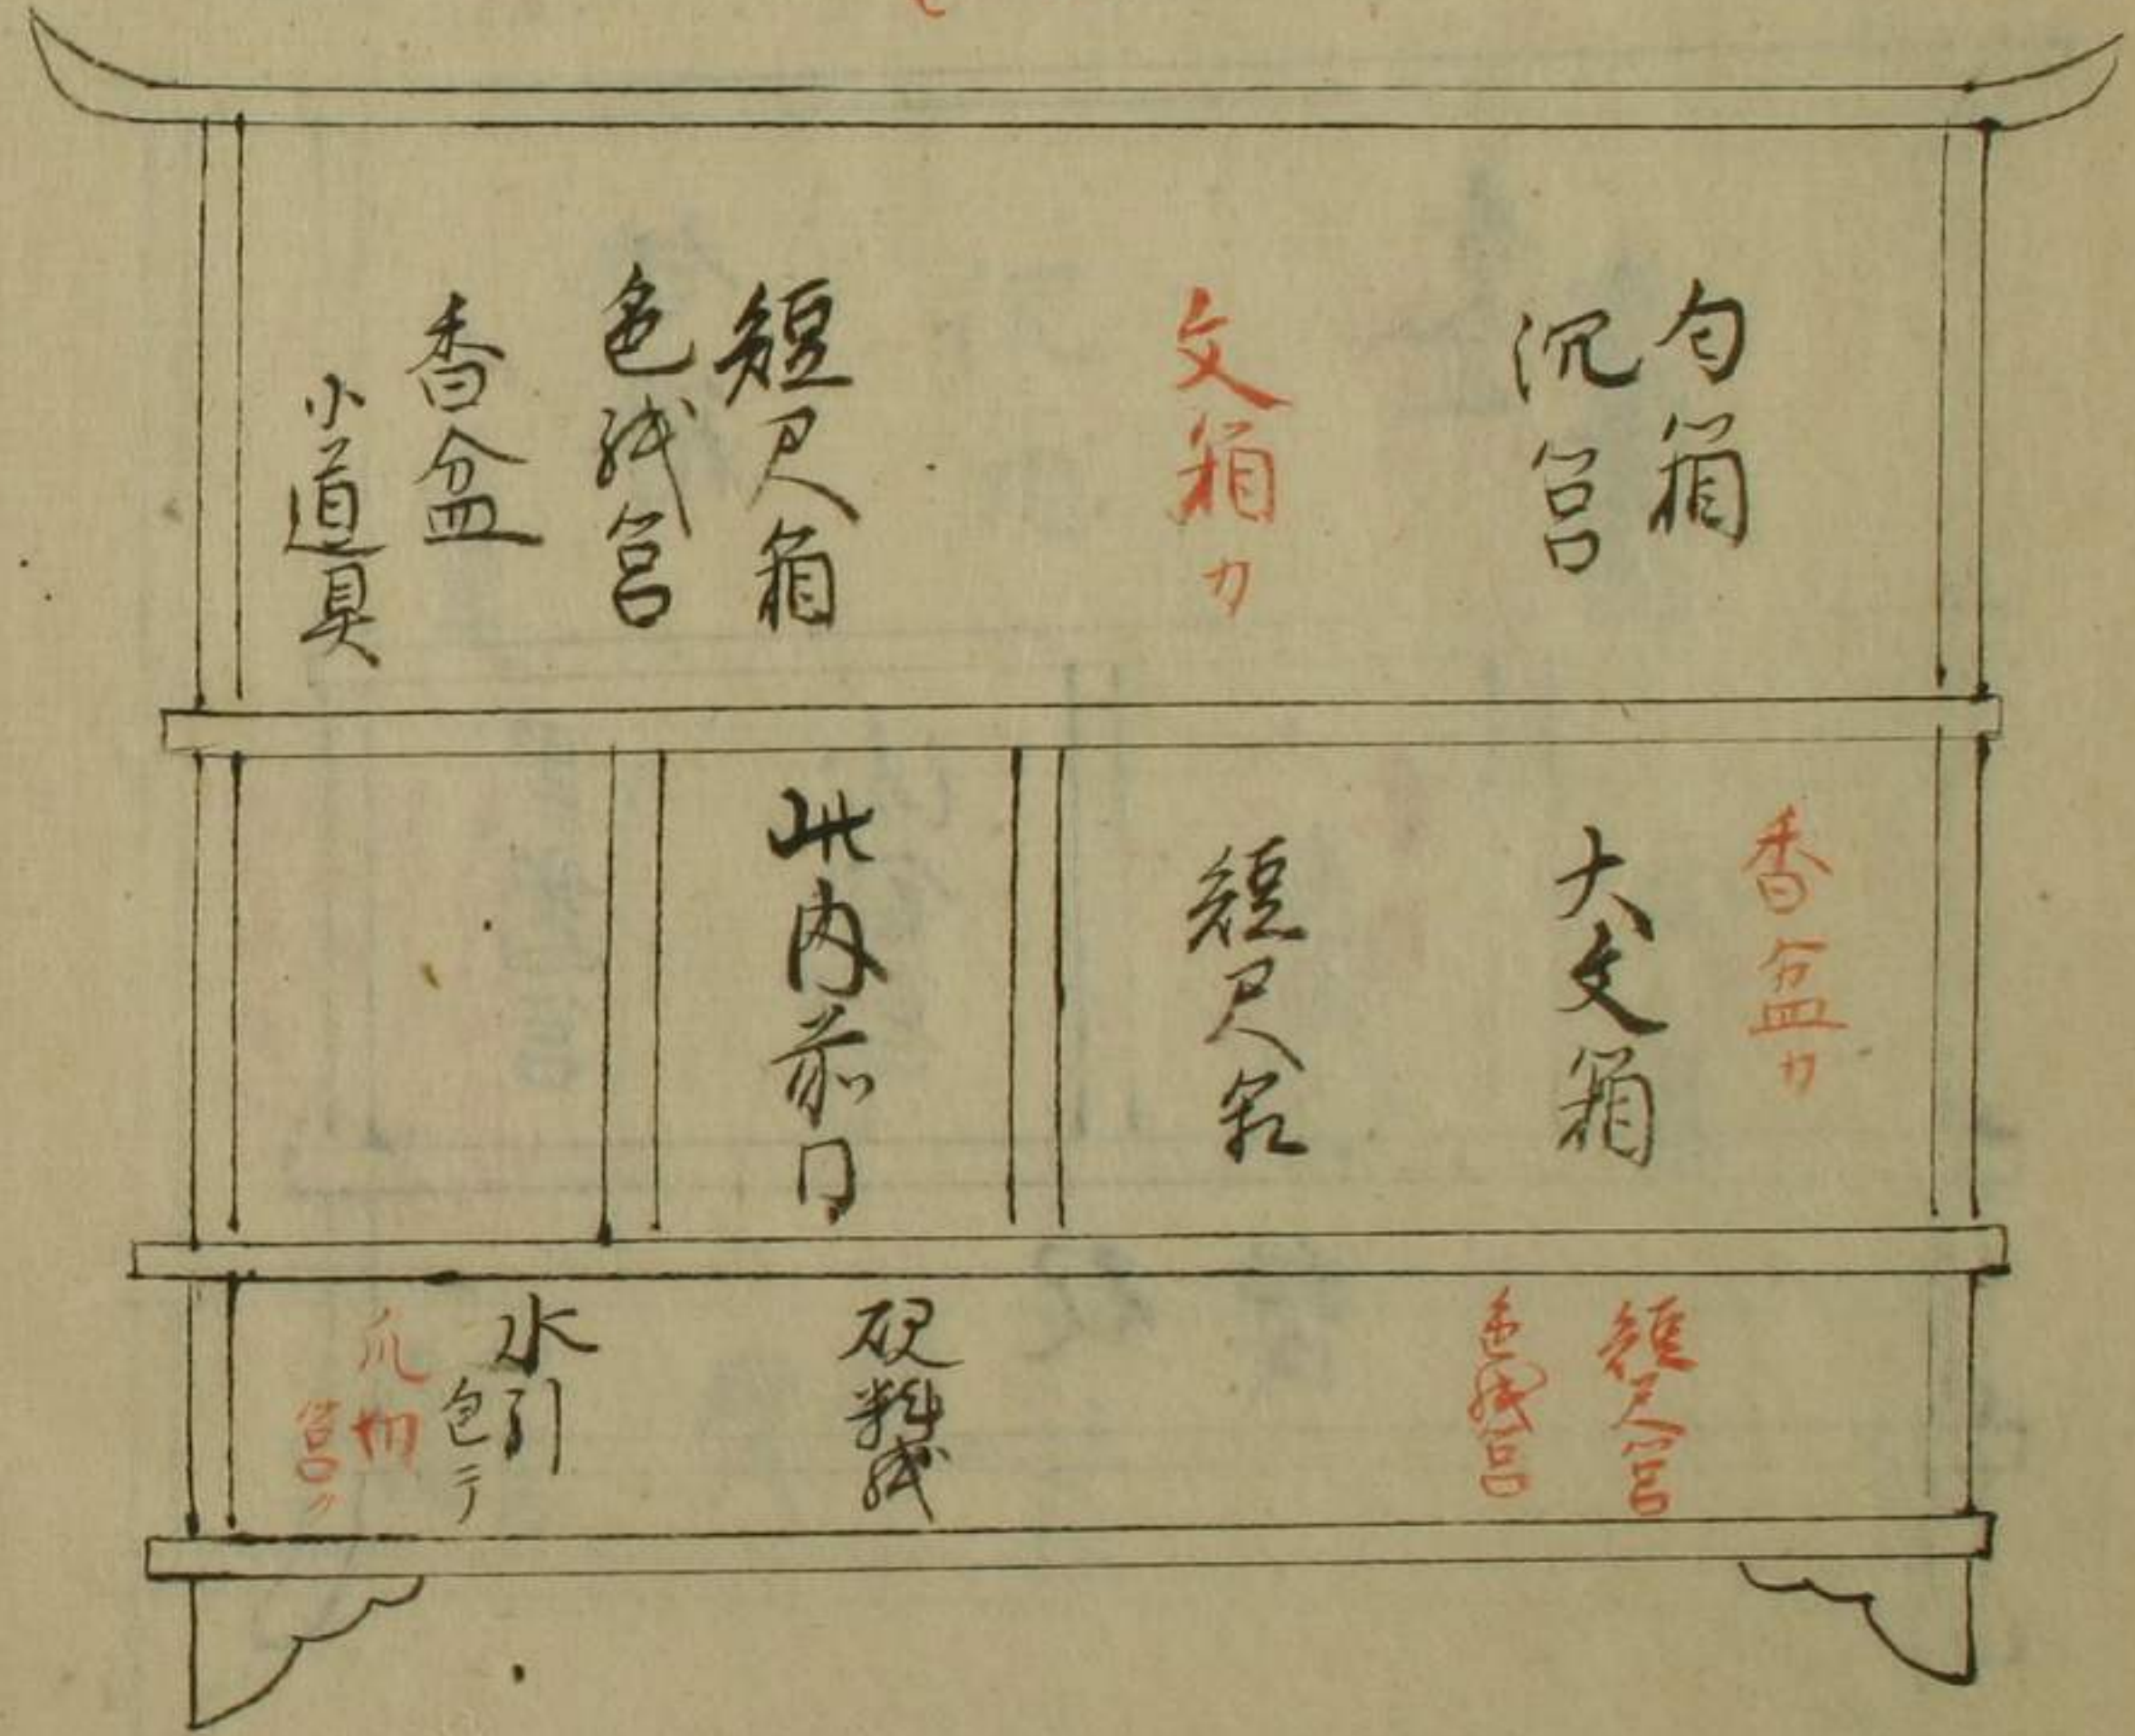 匂箱
沉筥
文箱カ
短尺箱
色紙筥
香盆
小道具
香盆カ
大文箱
短尺箱
此内前同
短尺筥
色紙筥
硯料紙
水引
包テ
爪切
筥カ